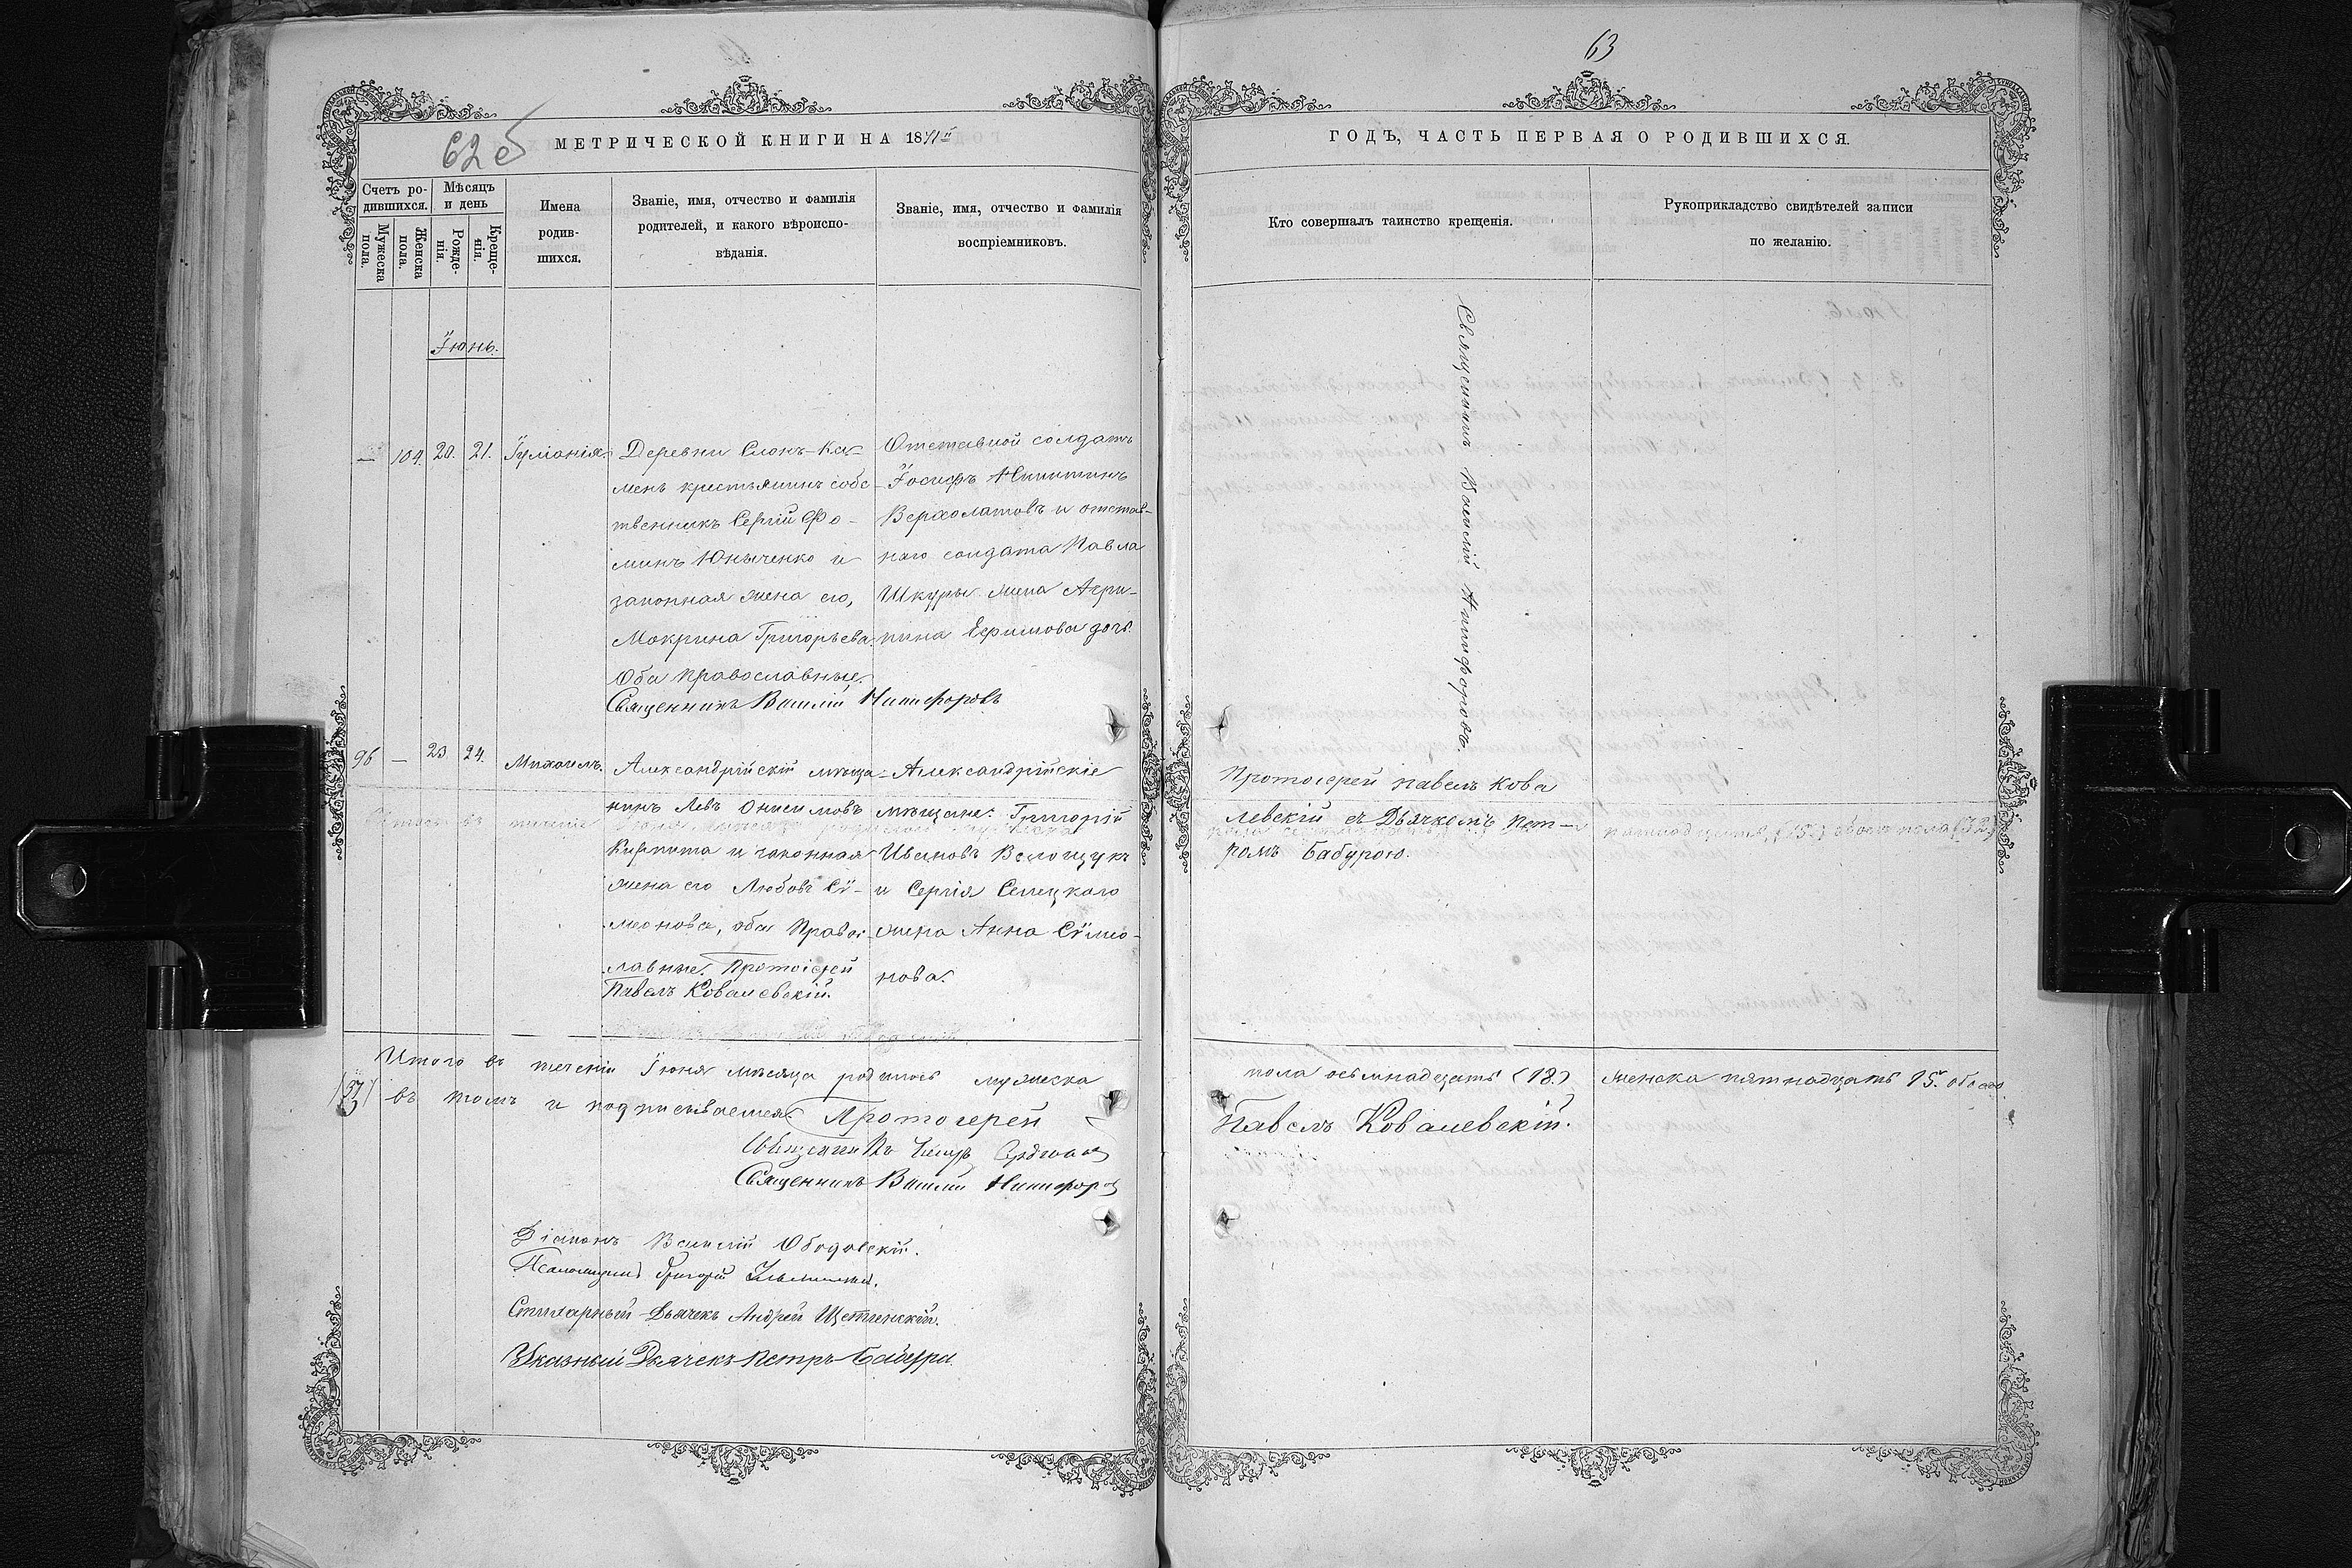 63
62 об
МЕТРИЧЕСКОЙ КНИГИ НА 1871й
ГОДЪ, ЧАСТЬ ПЕРВАЯ О РОДИВШИХСЯ.
Счетъ ро-
дившихся.
Мужеска
пола.
Женска
пола.
Мѣсяцъ
и день
Рожде-
нія.
Креще-
нія.
Имена
родив-
шихся.
Званіе, имя, отчество и фамилія
родителей, и какого вѣроиспо-
вѣданія.
Званіе, имя, отчество и фамилія
воспріемниковъ.
Кто совершалъ таинство крещенія.
Рукоприкладство свидѣтелей записи
по желанію.
Іюнь.
— 104. 20. 21. Іуліанія.
Деревни Слонъ-Ка-
мень крестьянинъ собс-
твенникъ Сергій Фо-
минъ и
законная жена его,
Макрина Григорьева.
Оба православные.
Священникъ Василій Никифоровъ
Отставной солдатъ
Іосифъ Никитинъ
и отстав-
наго солдата Павла
Шкуры жена Агри-
пина Ефимова дочь.
Священникъ Василій Никифоровъ.
96 — 23 24. Михаилъ.
Александрійскій мѣща-
нинъ Левъ Онисимовъ
и законная
жена его Любовь Сѵ-
меонова, оба Правос-
лавные. Протоіерей
Павелъ Ковалевскій.
Александрійскіе
мѣщане: Григорій
Ивановъ
и Сергія
жена Анна Сѵмео-
нова.
Протоіерей Павелъ Кова
левскій съ Дьячкомъ Пет-
ромъ Бабурою.
Итого въ теченіи Іюня мѣсяца родилось мужеска
пола осьмнадцать (18.) женска пятнадцать 15. обоего
въ томъ и подписываемся: Протоіерей
Павелъ Ковалевскій.
Священникъ
Священникъ Василій Никифоровъ
Діаконъ Василій Ободовскій.
Псаломщикъ Григорій
Дьячекъ Андрей
Указный Дьячекъ Петръ Бабура